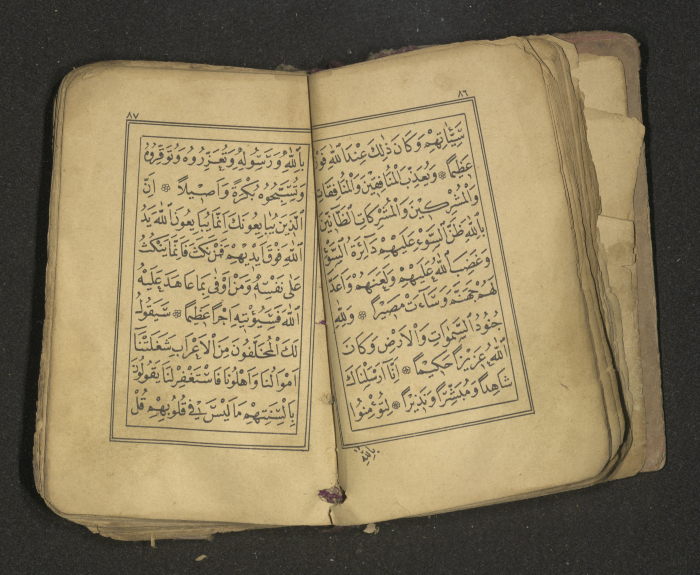 ٨٦
سَيِّئَاتِهِمْ وَكَانَ ذٰلِكَ عِنْدَ اللّٰهِ فَوْزًا
عَظِيمًا ۞ وَيُعَذِّبَ الْمُنَافِقِينَ وَالْمُنَافِقَاتِ
وَالْمُشْرِكِينَ وَالْمُشْرِكَاتِ الظَّانِّينَ
بِاللّٰهِ ظَنَّ السَّوْءِ عَلَيْهِمْ دَائِرَةُ السَّوْءِ
وَغَضِبَ اللّٰهُ عَلَيْهِمْ وَلَعَنَهُمْ وَاَعَدَّ
لَهُمْ جَهَنَّمَ وَسَاءَتْ مَصِيرًا ۞ وَلِلّٰهِ
جُنُودُ السَّمٰوَاتِ وَالْاَرْضِ وَكَانَ
اللّٰهُ عَزِيزًا حَكِيمًا ۞ اِنَّا اَرْسَلْنَاكَ
شَاهِدًا وَمُبَشِّرًا وَنَذِيرًا ۞ لِتُؤْمِنُوا
بِاللّٰهِ
٨٧
بِاللّٰهِ وَرَسُولِهِ وَتُعَزِّرُوهُ وَتُوَقِّرُوهُ
وَتُسَبِّحُوهُ بُكْرَةً وَاَصِيلًا ۞ اِنَّ
الَّذِينَ يُبَايِعُونَكَ اِنَّمَا يُبَايِعُونَ اللّٰهَ يَدُ
اللّٰهِ فَوْقَ اَيْدِيهِمْ فَمَنْ نَكَثَ فَاِنَّمَا يَنْكُثُ
عَلٰى نَفْسِهِ وَمَنْ اَوْفٰى بِمَا عَاهَدَ عَلَيْهُ
اللّٰهَ فَسَيُؤْتِيهِ اَجْرًا عَظِيمًا ۞ سَيَقُولُ
لَكَ الْمُخَلَّفُونَ مِنَ الْاَعْرَابِ شَغَلَتْنَا
اَمْوَالُنَا وَاَهْلُونَا فَاسْتَغْفِرْ لَنَا يَقُولُونَ
بِاَلْسِنَتِهِمْ مَا لَيْسَ فِي قُلُوبِهِمْ قُلْ